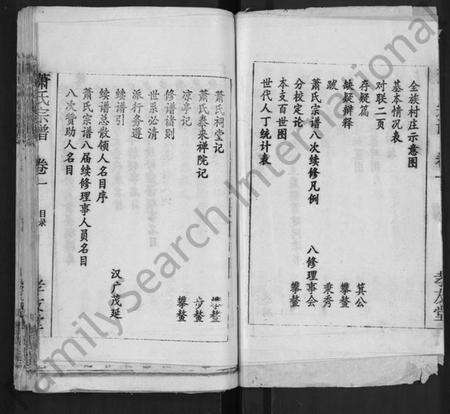 全族村庄示意图
基本情况表
对联二页
存疑篇 箕公
续疑辨释 攀鳌
跋 秉秀
萧氏宗谱八次续修凡例 八修理事会
分校定论 攀鳌
本支百世图
世代人丁统计表
孝友堂
萧氏祠堂记 攀鳌
萧氏泰来禅院记
凉亭记 步鳌
修谱诸则 攀鳌
世系必清
派行务遵
续谱引
续谱总散领人名目序 汉广茂延
萧氏宗谱八届续修理事人员名目
八次赞助人名目
萧氏宗谱 卷一 目录 孝友堂
FamilySearch International